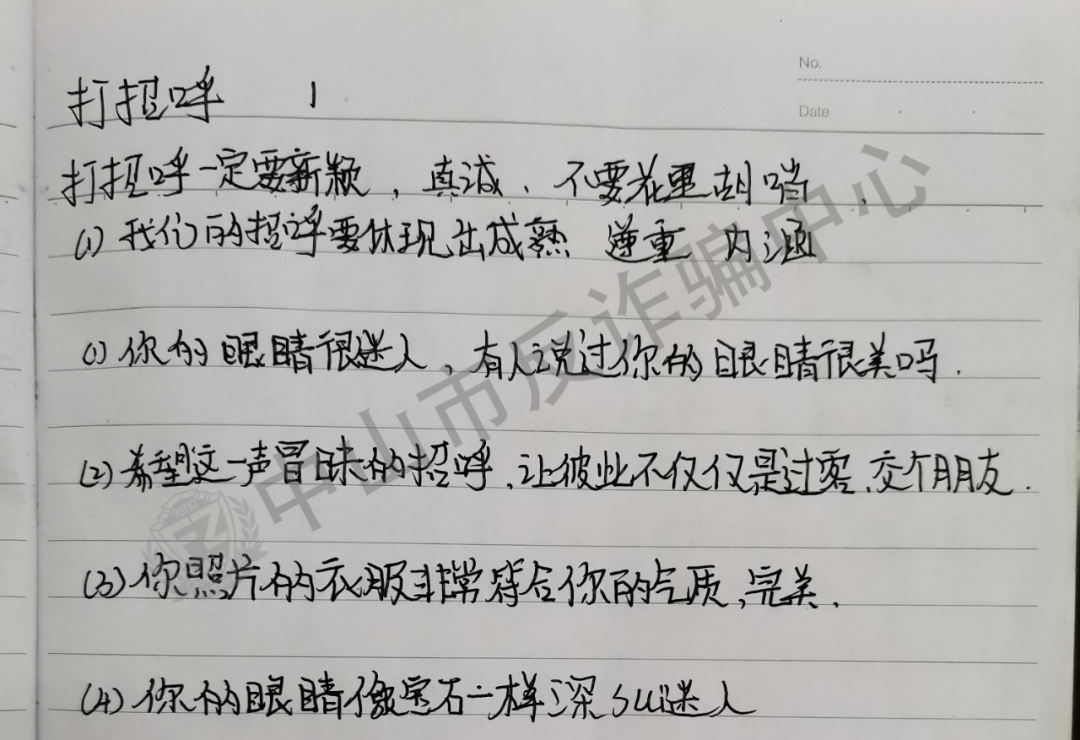 No.
Date
打招呼 1
打招呼一定要新颖，真诚、不要花里胡哨．
(1) 我们的招呼要体现出成熟 莲重 内涵
(1) 你的眼睛很迷人，有人说过你的眼睛很美吗．
(2) 希望这一声冒昧的招呼，让彼此不仅仅是过客、交个朋友．
(3) 你照片的衣服非常符合你的气质，完美．
(4) 你的眼睛像宝石一样深SUI迷人
中山市反诈骗中心